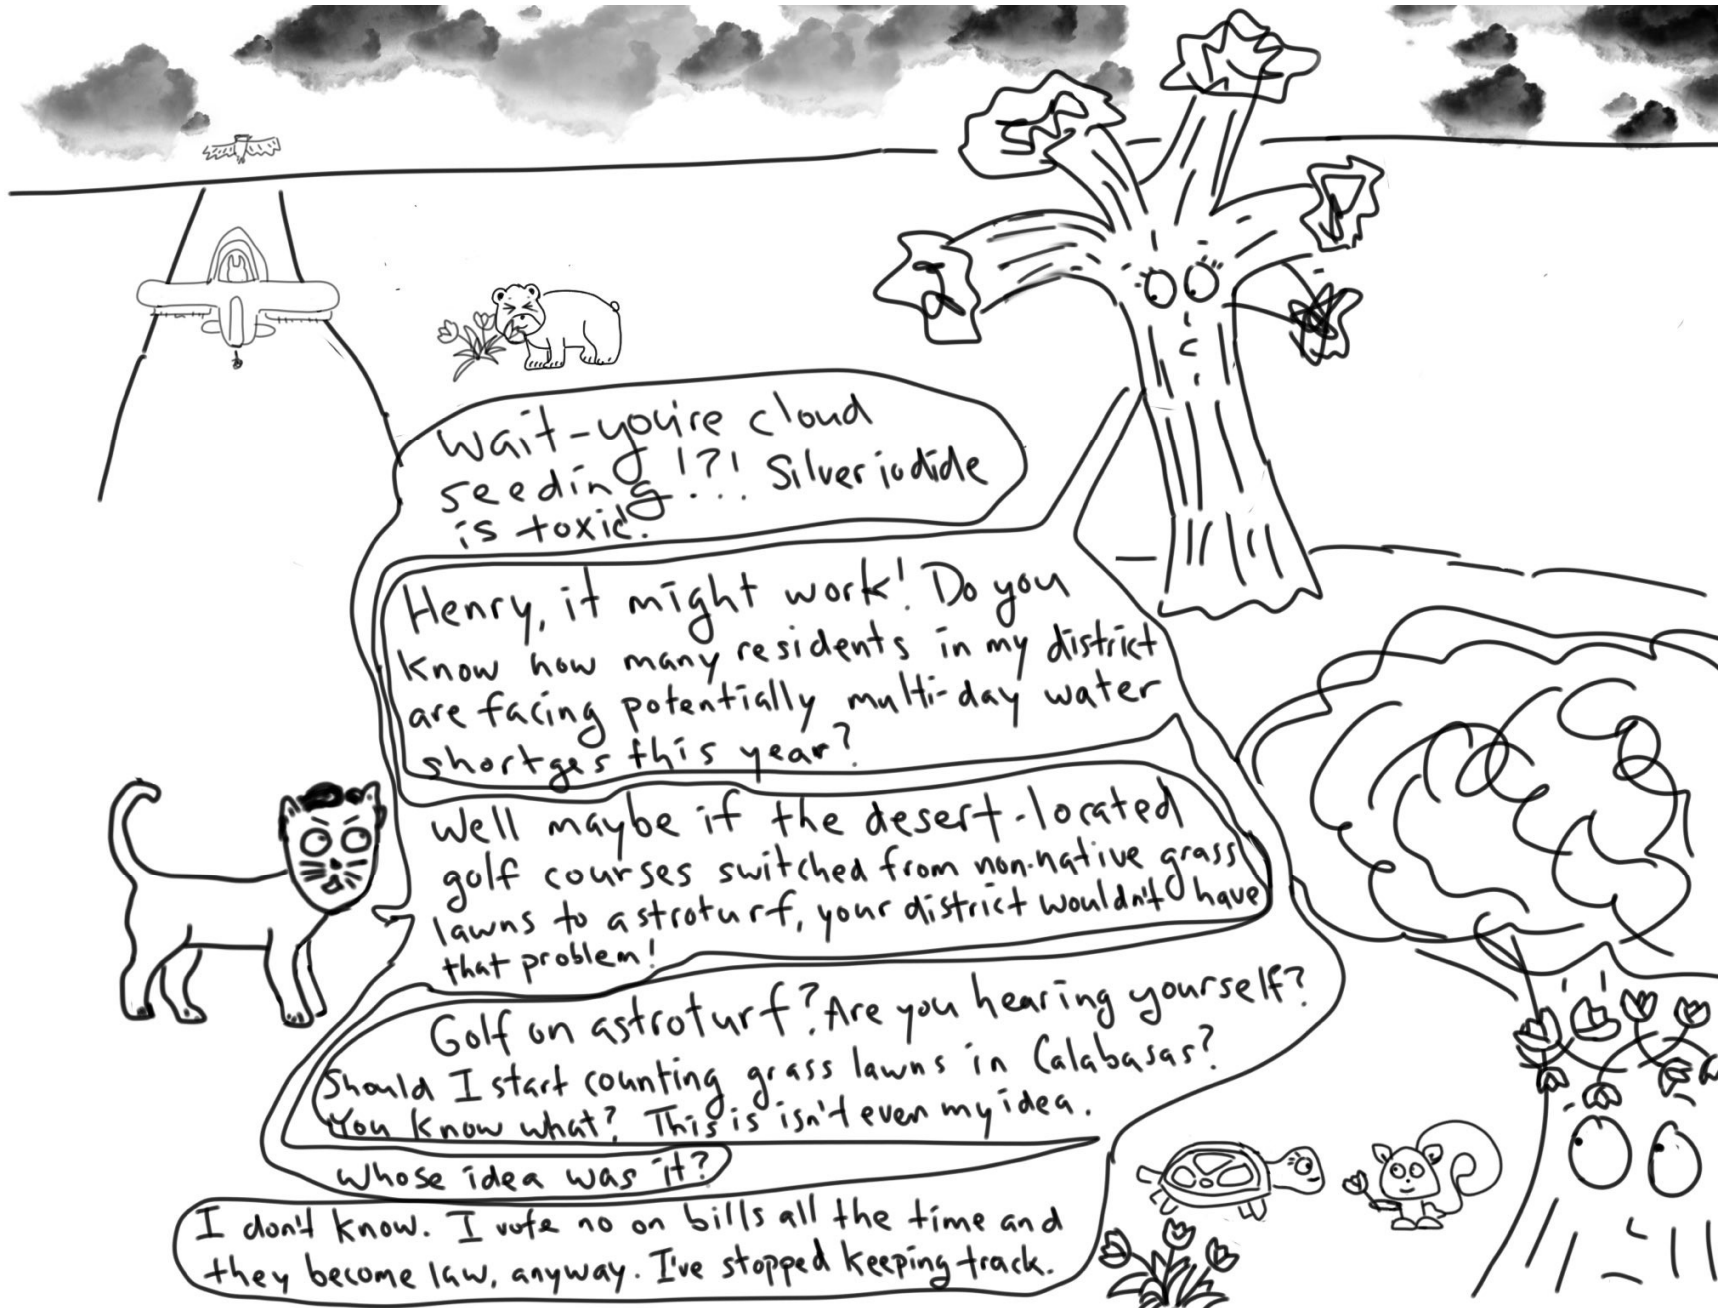 Wait-you're cloud
seeding!?!... Silver iodide
is toxic.
Henry, it might work! Do you
know how many residents in my district
are facing potentially multi-day water
shortges this year?
Well maybe if the desert-located
golf courses switched from non-native grass
lawns to astroturf, your district wouldn't have
that problem!
Golf on astroturf? Are you hearing yourself?
Should I start counting grass lawns in Calabasas?
You know what? This is isn't even my idea.
Whose idea was it?
I don't know. I vote no on bills all the time and
they become law, anyway. I've stopped keeping track.